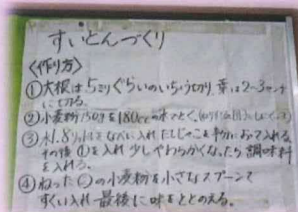 すいとんづくり
〈作り方〉
①大根は5ミリぐらいのいちょう切り 葉は2~3センチ
に切る。
②小麦粉150gを180ccの水でとく。
③水1.8リットルをなべに入れ だしじゃこを 入れる
その後①を入れ 少しやわらかくなったら 調味料
を入れる。
④ねった②の小麦粉を小さなスプーンで
すくい入れ 最後に味をととのえる。